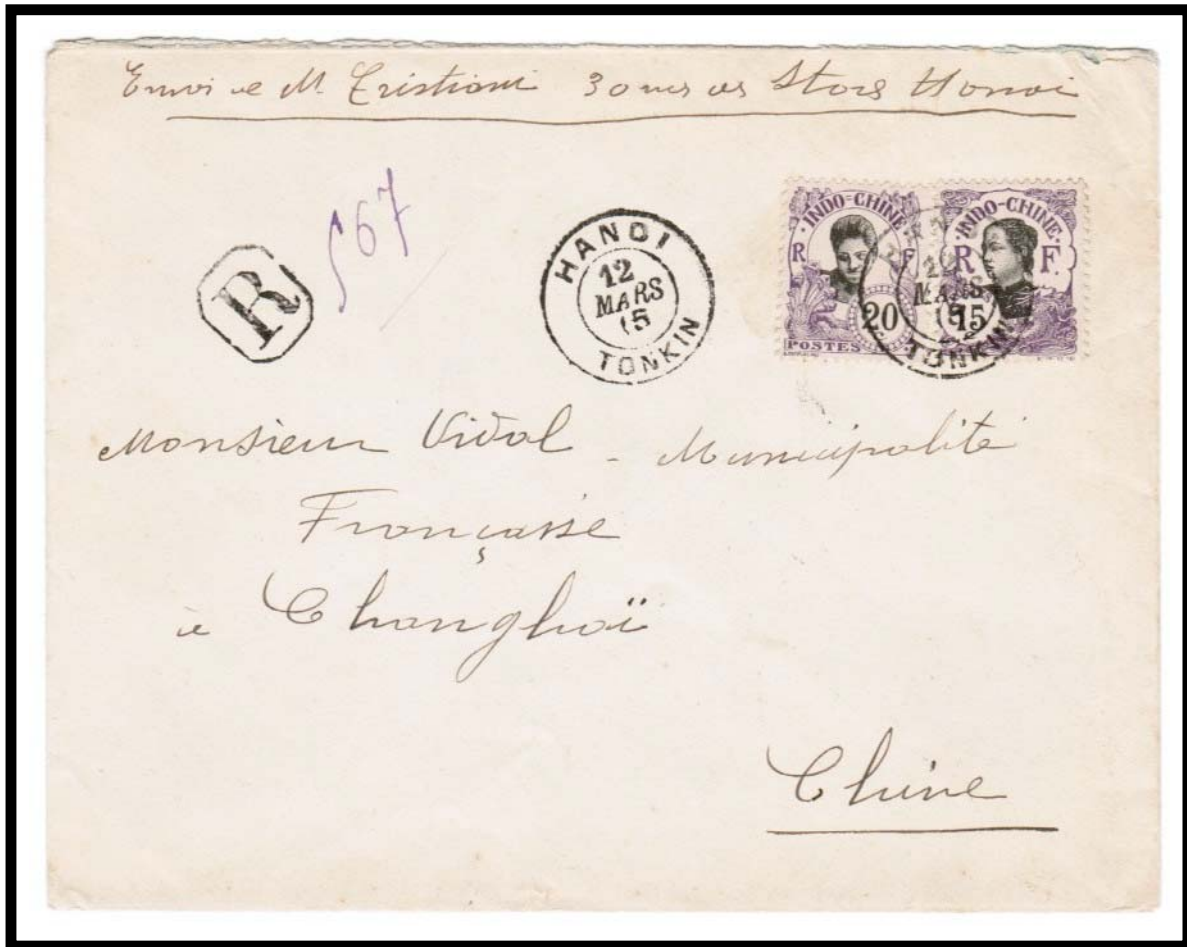 Envoi de M. Cristiani 30 rue des Stores Hanoi
R
567
HANOI
12
MARS
15
TONKIN
INDO-CHINE
R F
20
POSTES
INDO-CHINE
R F.
15
MARS
15
TONKIN
Monsieur Vidal - Municipalité
Française
à Changhaï
Chine